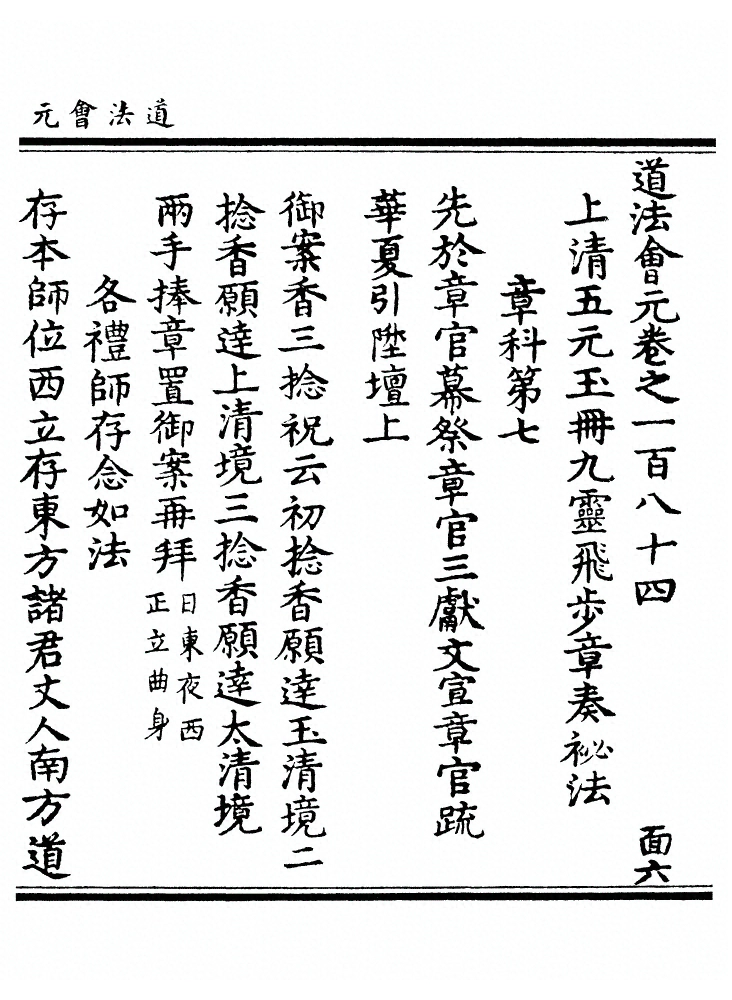 道法會元
道法會元卷之一百八十四
面六
上清五元玉冊九靈飛步章奏祕法
章科第七
先於章官幕祭章官三獻文宣章官疏
華夏引陞壇上
御案香三捻祝云初捻香願達玉清境二
捻香願達上清境三捻香願達太清境
兩手捧章置御案再拜
日東夜西
正立曲身
各禮師存念如法
存本師位西立存東方諸君丈人南方道